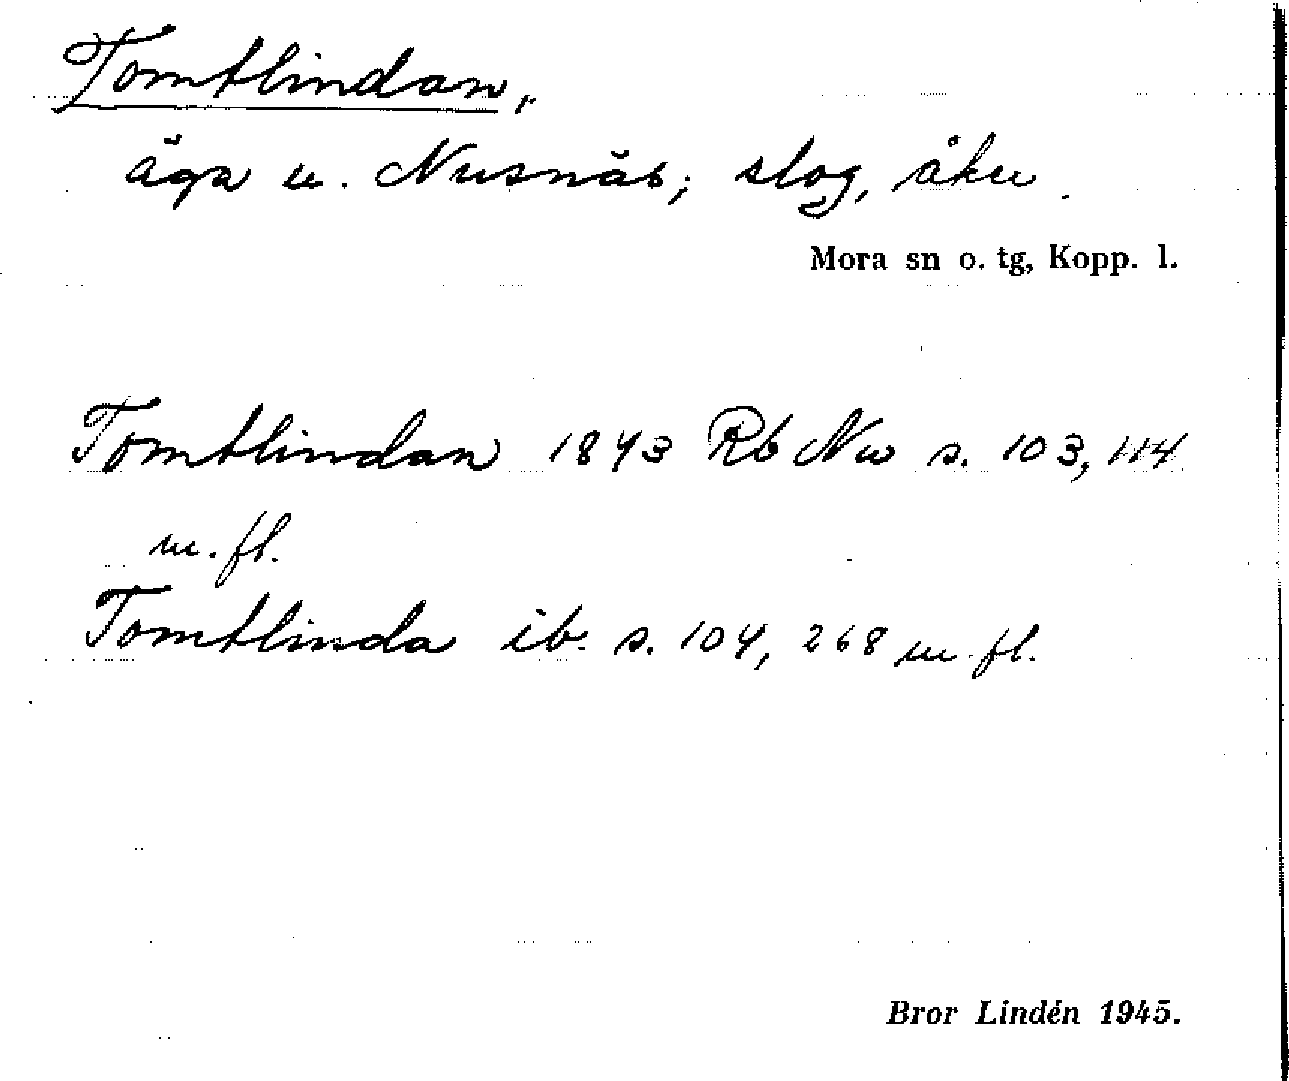 Tomtlindan,
äga u. Nusnäs; slog, åker.
Mora sn o. tg, Kopp. l.
Tomtlindan 1843 Rb Nw s. 103, 114
m. fl.
Tomtlinda ib. s. 104, 268 m. fl.
Bror Lindén 1945.